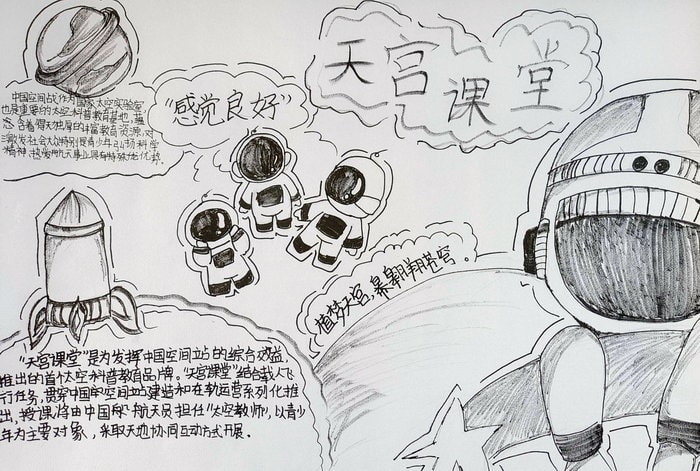 天宫课堂
"感觉良好"
中国空间战作为国家太空实验室
也是重要的太空科普教育基地,蕴
含着得天独厚的科普教育资源,对
激发社会大众特别是青少年弘扬科学
精神,热爱航天事业具有特殊地优势.
植梦天宫,翱翔苍穹。
"天宫课堂"是为发挥中国空间站的综合效益,
推出的首个太空科普教育品牌。"天宫课堂"结合载人飞
行任务,贯穿中国空间站建造和在轨运营系列化推
出,授课将由中国航天员担任"太空教师",以青少
年为主要对象,采取天地协同互动方式开展。